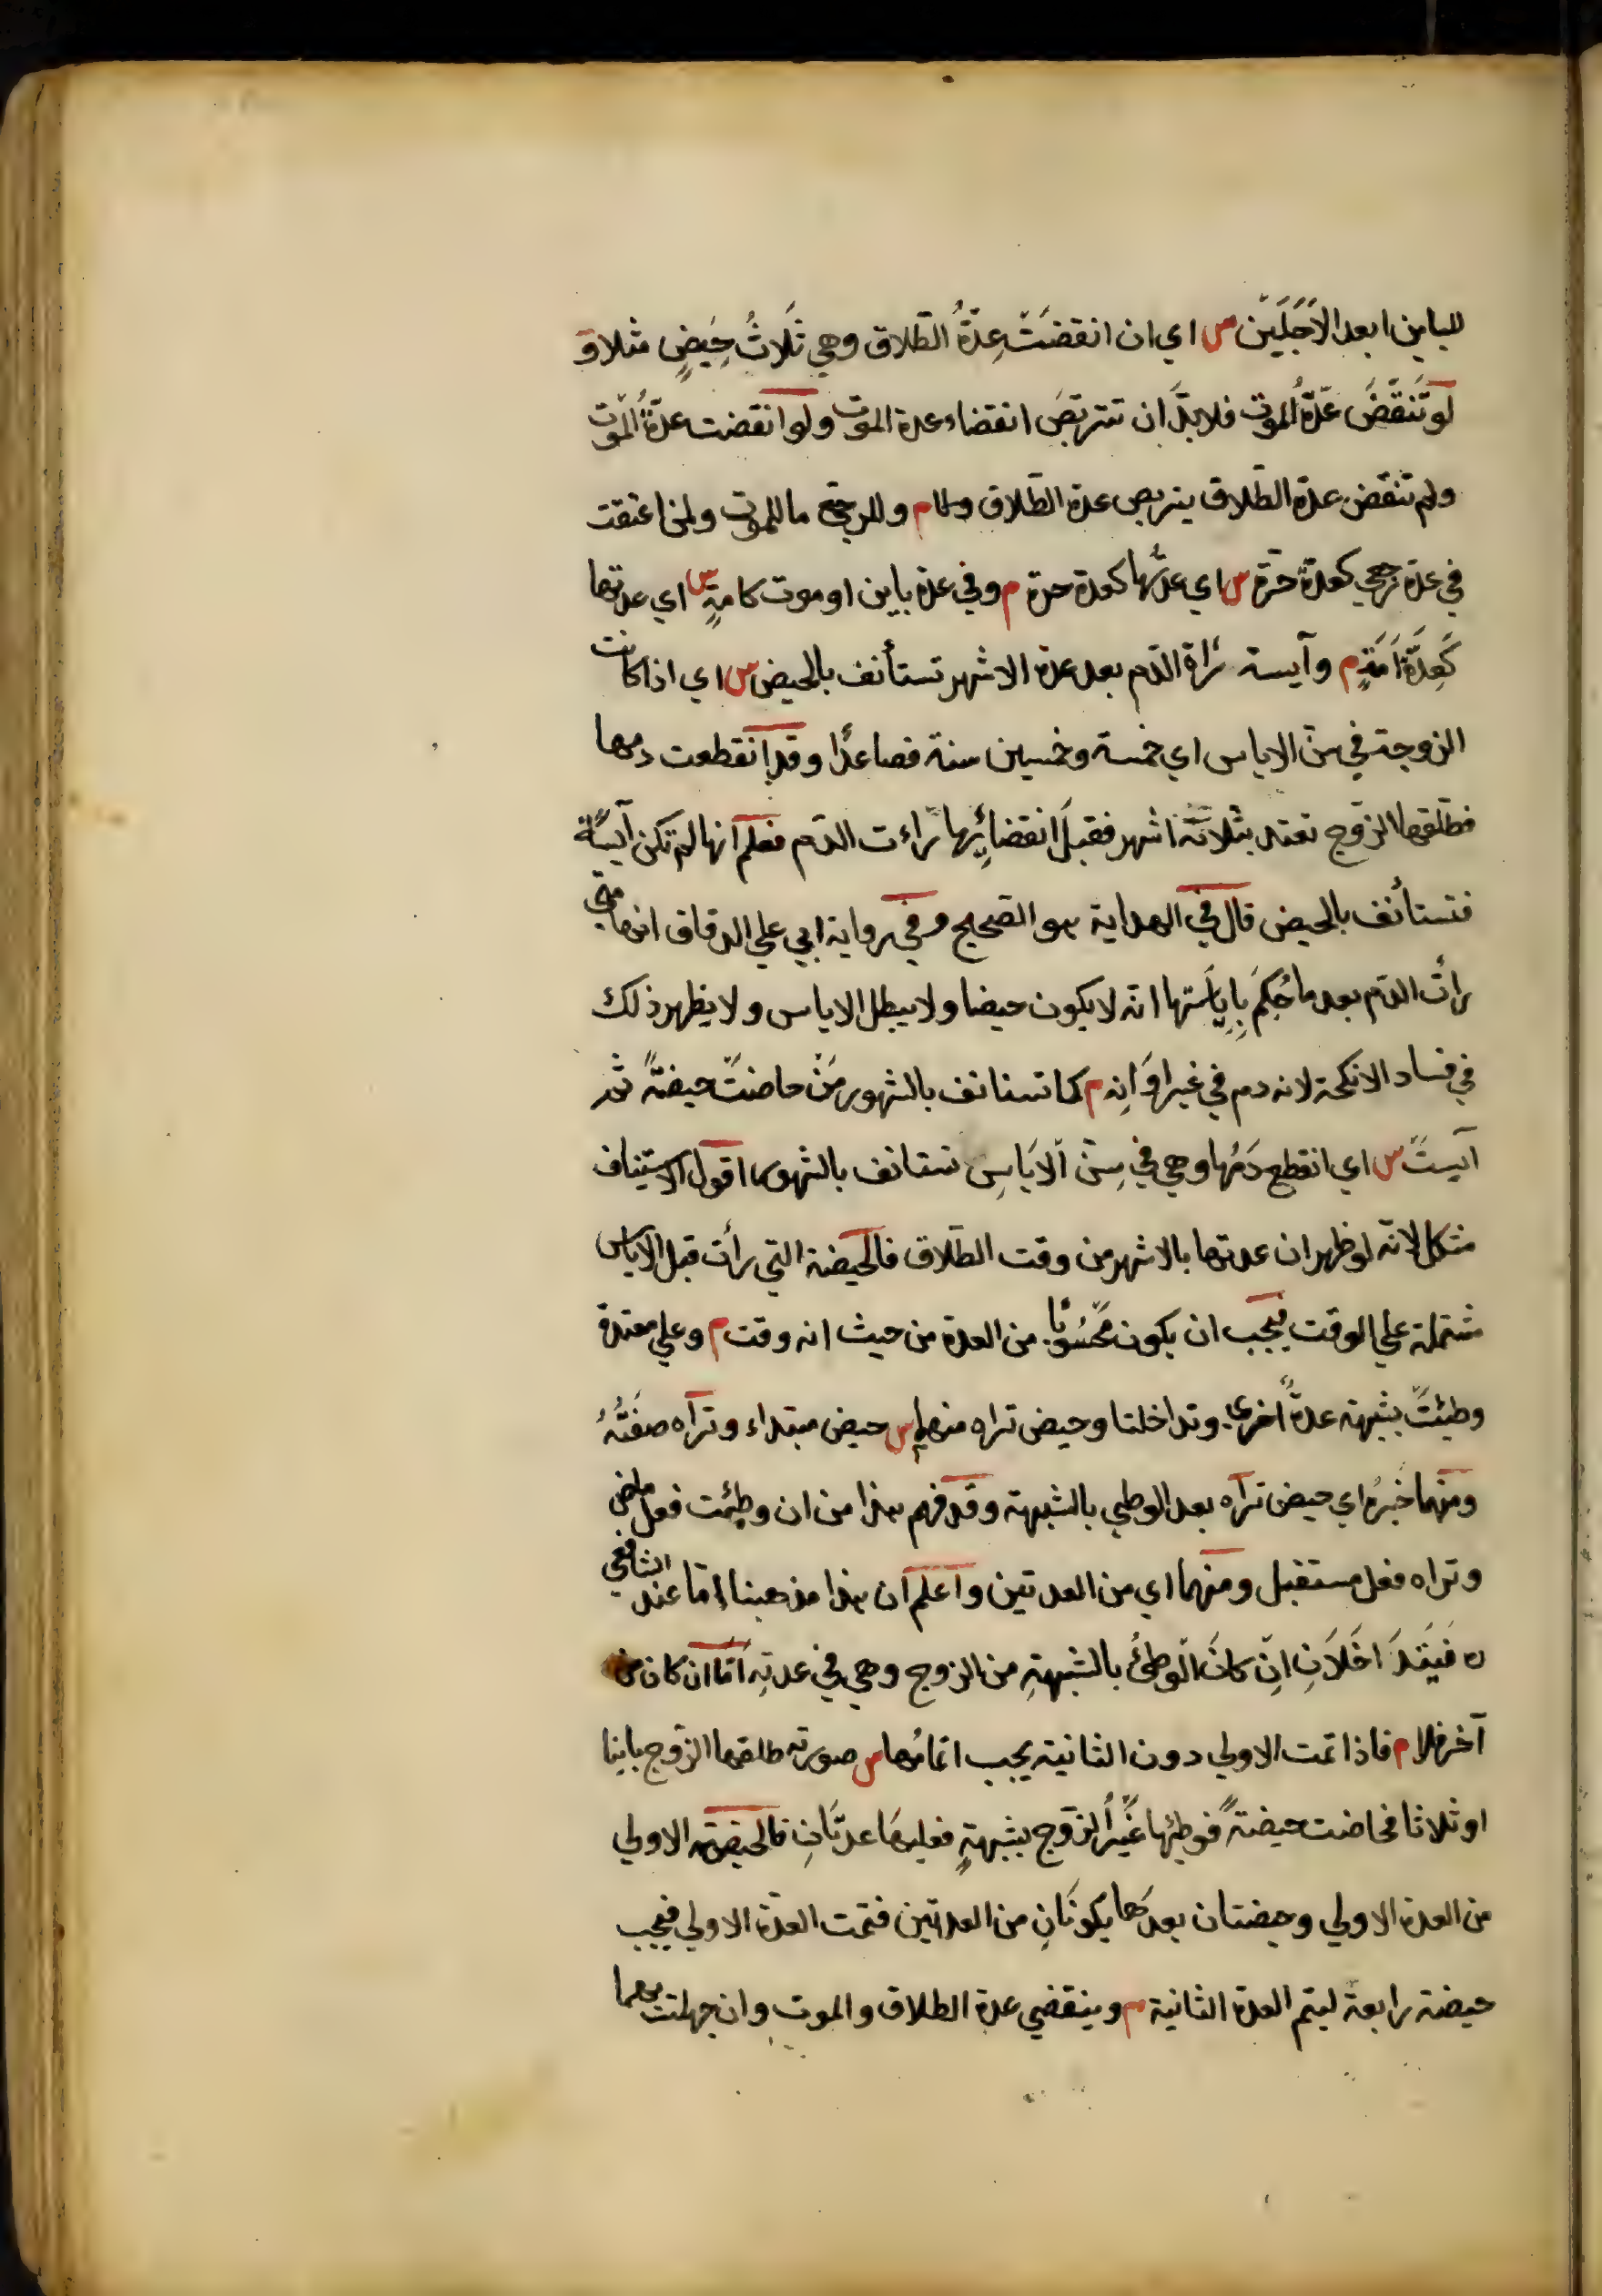 للباين ابعد الاَجَلَيْن س اي ان انقضَتْ عِدَّةُ الطّلاق وهي ثَلاثُ حِيَضٍ مثلا و
لو تَنقَضِ عدّةُ الموت فلا بدّ ان تتربّصَ انقضاء عدة الموت ولو انقضت عدّةُ الموت
ولم تنقض عدّة الطّلاق يتربص عدة الطّلاق م وللرجعي ما للموت ولمن اعتقت
في عدة رجعي كعدّة حرّة س اي عدّتُها كعدة حرة م وفي عدة باين او موت كامةٍ س اي عدتها
كَعِدَّةِ اَمَةٍ م وآيسة تراة الدّم بعد عدة الاشهر تستأنف بالحيض س اي اذا كانت
الزوجة في سنّ الاياس اي خمسة وخمسين سنة فصاعدًا وقد انقطعت دمها
فطلّقها الزّوج تعتد بثلاثة اشهر فقبلَ انقضائِها راءت الدّم فعلم انها لم تكن آيسًة
فتستأنف بالحيض قال في الهداية هو الصحيح وفي رواية ابي علي الدقاق انها متي
رأت الدّم بعد ما حُكِمَ بِاِيَاسَتها انّه لا يكون حيضا ولا يبطل الاياس ولا يظهر ذلك
في فساد الانكحة لانه دم في غير اَوَانِه م كما تستانف بالشهور مَنْ حاضتْ حيضةً ثمّ
آيستْ س اي انقطع دَمُها وهي في سِنّ الاَيَاسِ تستانف بالشهور اقول الاستيناف
مشكل لانّه لو ظهر ان عدتها بالاشهر من وقت الطّلاق فالحيضة التي رأت قبل الاياس
مشتملة علي الوقت فيجب ان يكون مَحْسُوبًا من العدة من حيث انه وقت م وعلي معتدة
وطئتْ بشبهة عدةً اخري وتداخلتا وحيض تراه منهما س حيض مبتداء وتراه صفَتُهُ
ومنهما خبرُه اي حيض تراه بعد الوطي بالشبهة وقد فهم هذا من ان وطِئت فعل ماض
وتراه فعل مستقبل ومنهما اي من العدتين واعلم ان هذا مذهبنا امّا عند الشافعي
ره فَيَتَدَاخَلاَنِ اِنْ كَانَ الوطئُ بالشبهةِ من الزوج وهي في عدتِه اَمّا ان كان من
آخر فلا م فاذا تمت الاولي دون الثانية يجب اتمامُها س صورته طلقها الزّوج باينا
او ثلاثا فحاضت حيضةً فوطئها غَيْرُ الزّوج بشبهةٍ فعليها عدّتَانِ فالحيضة الاولي
من العدة الاولي وحيضتان بعدَها يكونَانِ من العدتين فتمت العدة الاولي فيجب
حيضة رابعة ليتم العدة الثانية م وينقضي عدة الطلاق والموت وان جهلت بهما